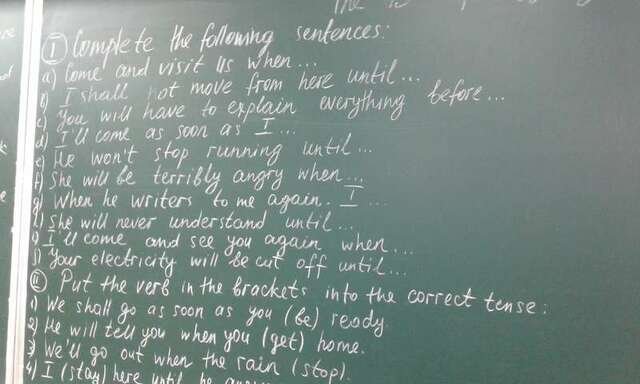 The
I Complete the following sentences:
a) Come and visit us when...
b) I shall not move from here until...
c) You will have to explain everything before...
d) I'll come as soon as I...
e) He won't stop running until...
f) She will be terribly angry when...
g) When he writers to me again. I ...
h) She will never understand until...
i) I'll come and see you again when...
j) Your electricity will be cut off until...
II Put the verb in the brackets into the correct tense:
1) We shall go as soon as you (be) ready.
2) He will tell you when you (get) home.
3) We'll go out when the rain (stop).
4) I (stay) here until he